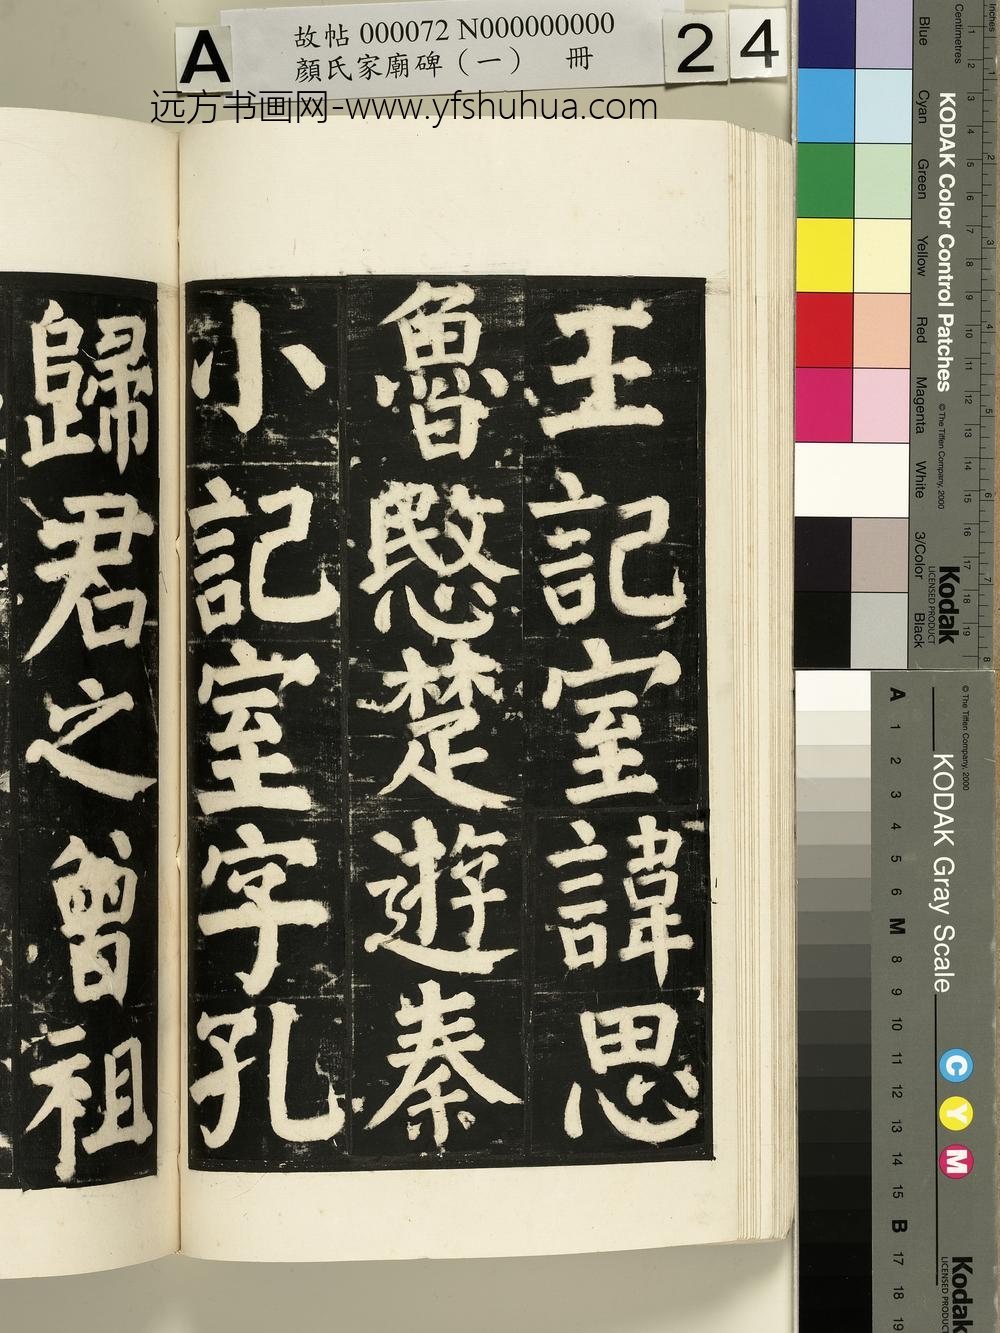 A
故帖 000072 N000000000
顏氏家廟碑（一） 冊
2 4
远方书画网-www.yfshuhua.com
王記室諱思
魯愍楚遊秦
小記室字孔
歸君之曾祖
Inches
Centimetres
Blue
Cyan
Green
Yellow
Red
Magenta
White
3/Color
Black
KODAK Color Control Patches
© The Tiffen Company, 2000
Kodak
LICENSED PRODUCT
1 2 3 4 5 6 7 8 9 10 11 12 13 14 15 16 17 18 19
1 2 3 4 5 6 7 8
© The Tiffen Company, 2000
KODAK Gray Scale
A 1 2 3 4 5 6 M 8 9 10 11 12 13 14 15 B 17 18 19
C
Y
M
Kodak
LICENSED PRODUCT